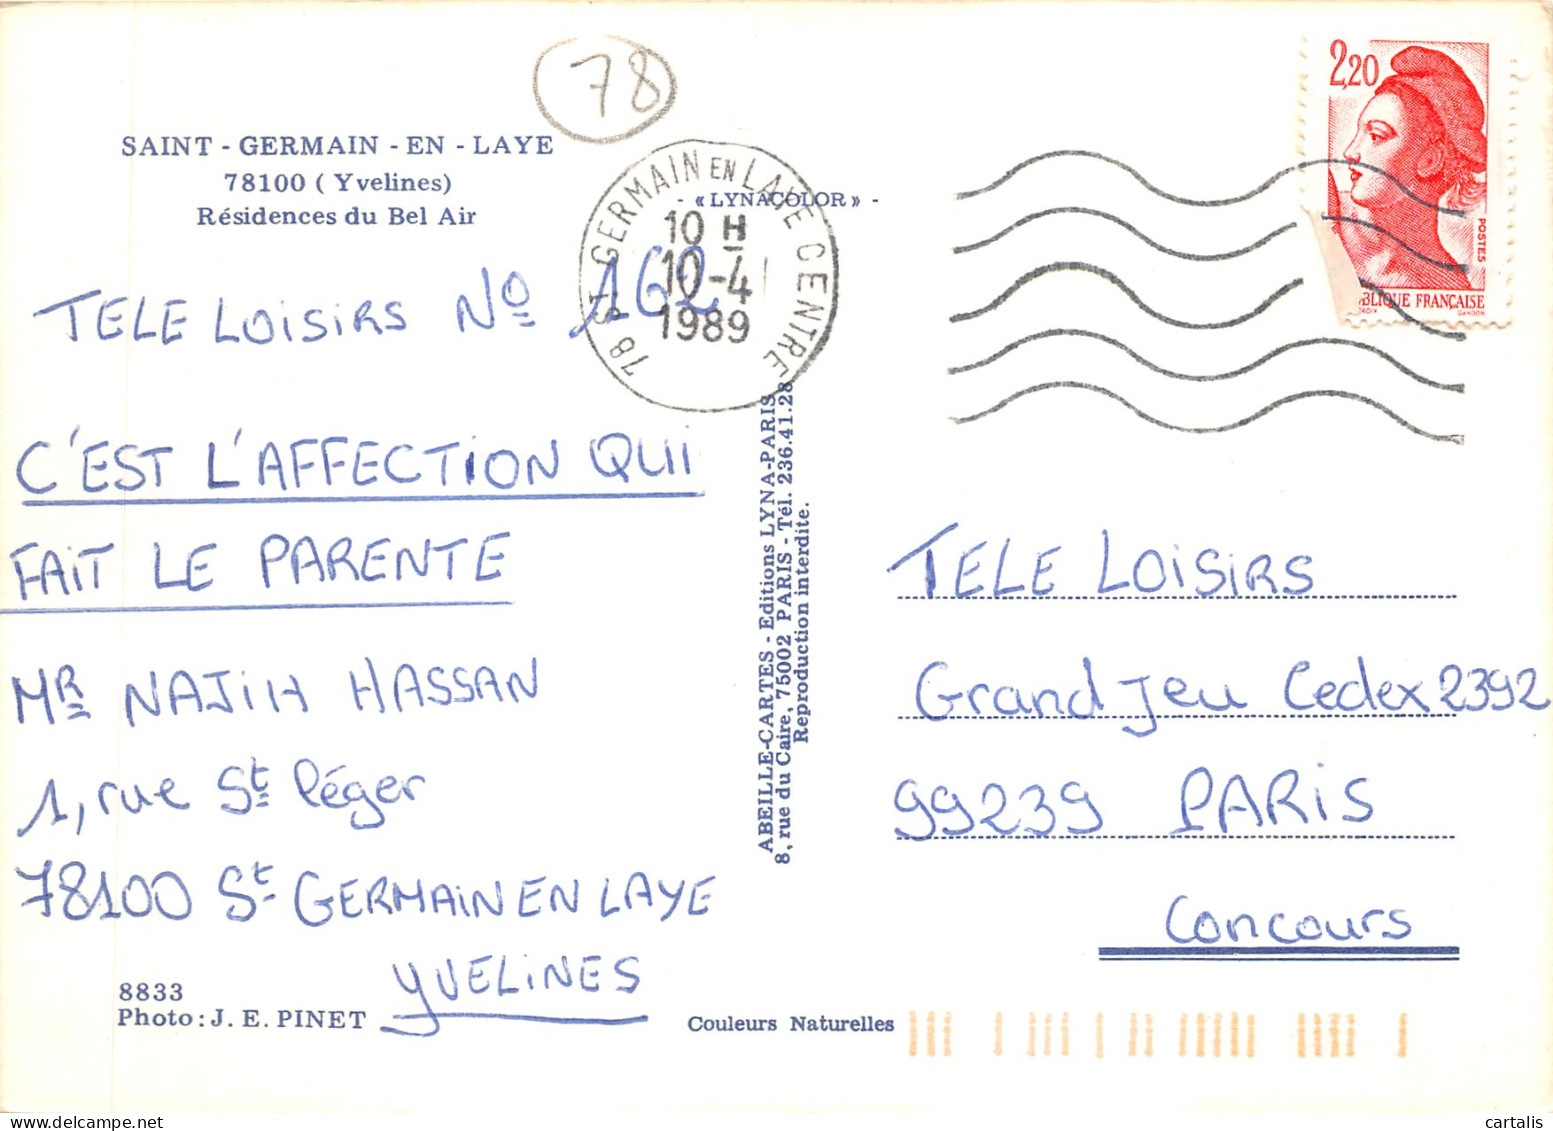 78
SAINT - GERMAIN - EN - LAYE
78100 ( Yvelines)
Résidences du Bel Air
- « LYNACOLOR » -
78 ST GERMAIN EN LAYE CENTRE
10 H
10-4
1989
2,20
POSTES
BLIQUE FRANÇAISE
GANDON
TELE LOISIRS No 162
C'EST L'AFFECTION QUI
FAIT LE PARENTE
MR NAJIH HASSAN
1, rue St léger
78100 St GERMAIN EN LAYE
YVELINES
8833
Photo : J. E. PINET
Couleurs Naturelles
ABEILLE-CARTES - Editions LYNA-PARIS
8, rue du Caire, 75002 PARIS - Tél. 236.41.28
Reproduction interdite.
TELE LOISIRS
Grand Jeu Cedex 2392
99239 PARIS
Concours
cartalis